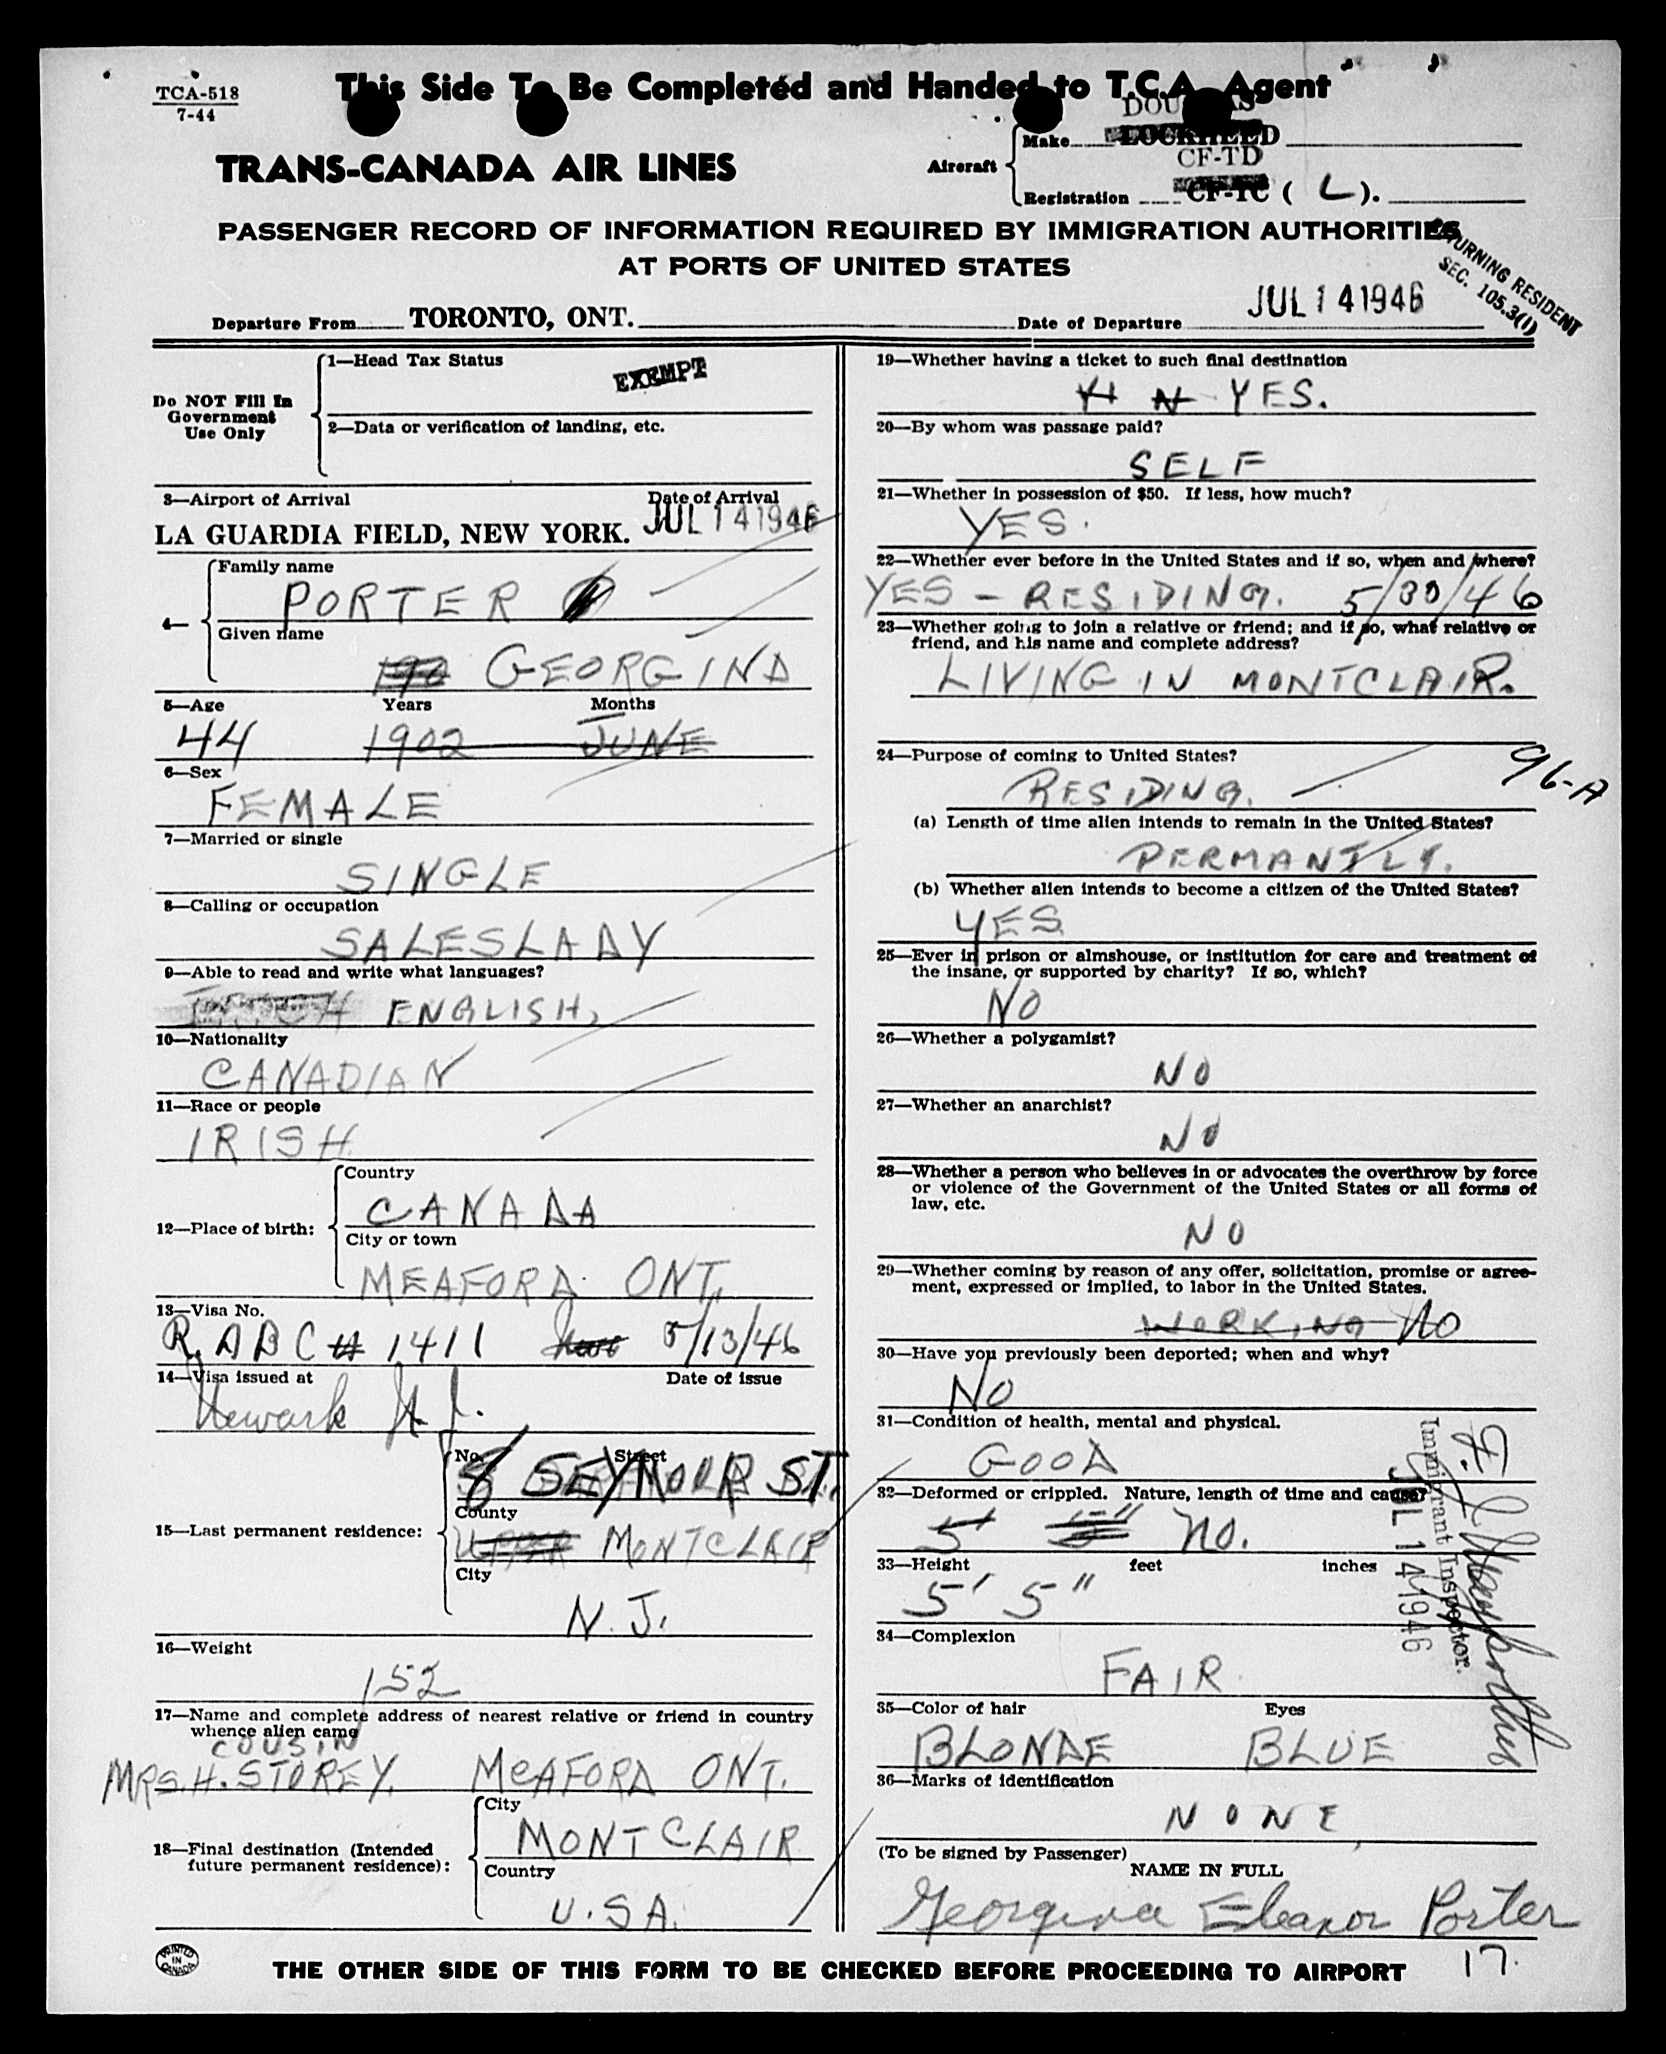 TCA-518
7-44
This Side To Be Completed and Handed to T.C.A. Agent
TRANS-CANADA AIR LINES
Aircraft
Make
DOUGLAS
LOCKHEED
CF-TD
Registration CF-TC ( L ).
PASSENGER RECORD OF INFORMATION REQUIRED BY IMMIGRATION AUTHORITIES
AT PORTS OF UNITED STATES
RETURNING RESIDENT
SEC. 105.3(1)
Departure From TORONTO, ONT.
Date of Departure JUL 14 1946
Do NOT Fill In
Government
Use Only
1—Head Tax Status
EXEMPT
2—Data or verification of landing, etc.
3—Airport of Arrival Date of Arrival
LA GUARDIA FIELD, NEW YORK. JUL 14 1946
4—
Family name
PORTER
Given name
GEORGINA
5—Age Years Months
44 1902 JUNE
6—Sex
FEMALE
7—Married or single
SINGLE
8—Calling or occupation
SALESLADY
9—Able to read and write what languages?
ENGLISH,
10—Nationality
CANADIAN
11—Race or people
IRISH
12—Place of birth:
Country
CANADA
City or town
MEAFORD ONT.
13—Visa No.
R. ABC # 1411 5/13/46
14—Visa issued at Date of issue
Newark N. J.
15—Last permanent residence:
No. Street
8 SEYMOUR ST.
County
UPPER MONTCLAIR
City
N. J.
16—Weight
152
17—Name and complete address of nearest relative or friend in country
whence alien came
COUSIN
MRS. H. STOREY. MEAFORD ONT.
18—Final destination (Intended
future permanent residence):
City
MONTCLAIR
Country
U.S.A.
19—Whether having a ticket to such final destination
YES.
20—By whom was passage paid?
SELF
21—Whether in possession of $50. If less, how much?
YES.
22—Whether ever before in the United States and if so, when and where?
YES – RESIDING. 5/30/46
23—Whether going to join a relative or friend; and if so, what relative or
friend, and his name and complete address?
LIVING IN MONTCLAIR.
24—Purpose of coming to United States?
96-A
RESIDING.
(a) Length of time alien intends to remain in the United States?
PERMANTLY.
(b) Whether alien intends to become a citizen of the United States?
YES
25—Ever in prison or almshouse, or institution for care and treatment of
the insane, or supported by charity? If so, which?
NO
26—Whether a polygamist?
NO
27—Whether an anarchist?
NO
28—Whether a person who believes in or advocates the overthrow by force
or violence of the Government of the United States or all forms of
law, etc.
NO
29—Whether coming by reason of any offer, solicitation, promise or agree-
ment, expressed or implied, to labor in the United States.
WORKING NO
30—Have you previously been deported; when and why?
NO
31—Condition of health, mental and physical.
GOOD
32—Deformed or crippled. Nature, length of time and cause?
5' 5" NO.
33—Height feet inches
5' 5"
34—Complexion
FAIR
35—Color of hair Eyes
BLONDE BLUE
36—Marks of identification
NONE
Immigrant Inspector.
JUL 14 1946
(To be signed by Passenger)
NAME IN FULL
Georgina Eleanor Porter
17.
PRINTED
IN
CANADA
THE OTHER SIDE OF THIS FORM TO BE CHECKED BEFORE PROCEEDING TO AIRPORT